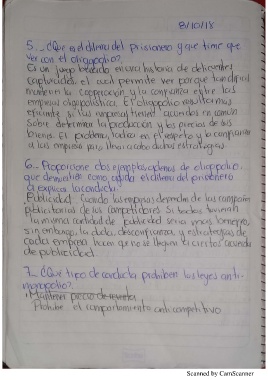 8/10/18
5. ¿Que es el dilema del prisionero y que tiene que
ver con el oligopolio?
Es un juego basado en una historia de delincuentes
capturados, el cual permite ver porque tan dificil
mantener la cooperación y la confianza entre las
empresas oligopolísticas. El oligopolio es
eficiente si las empresas tienen acuerdos en común
sobre determinar la producción y los precios de sus
bienes. El problema radica en el respeto y la confianza
a las empresas para llevar a cabo dichas estrategias.
6. Proporcione dos ejemplos de oligopolio,
que demuestre como ayuda el dilema del prisionero
a explicar la conducta
Publicidad: Cuando las empresas dependen de las campañas
publicitarias de los competidores. Si todos tuvieran
la misma cantidad de publicidad seria mas
sin embargo, la duda, desconfianza, y estrategias de
cada empresa hacen que no se lleguen a ciertos acuerdos
de publicidad.
7. ¿Que tipo de conducta prohiben las leyes anti-
monopolio?
Mantener precio de reventa
Prohibe el comportamiento anticompetitivo
Scanned by CamScanner